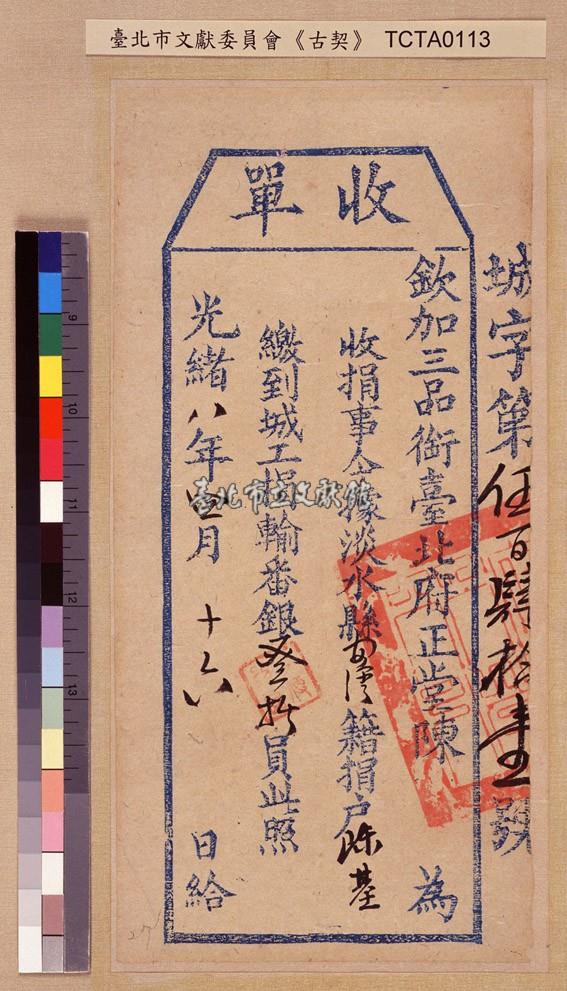 臺北市文獻委員會《古契》 TCTA0113
收單
城字第伍百肆拾壹號
欽加三品銜臺北府正堂陳 為
收捐事今據淡水縣 籍捐户陈基
繳到城工捐輸番銀叁拾員此照
光緒八年四月十六日給
臺北市立文獻館